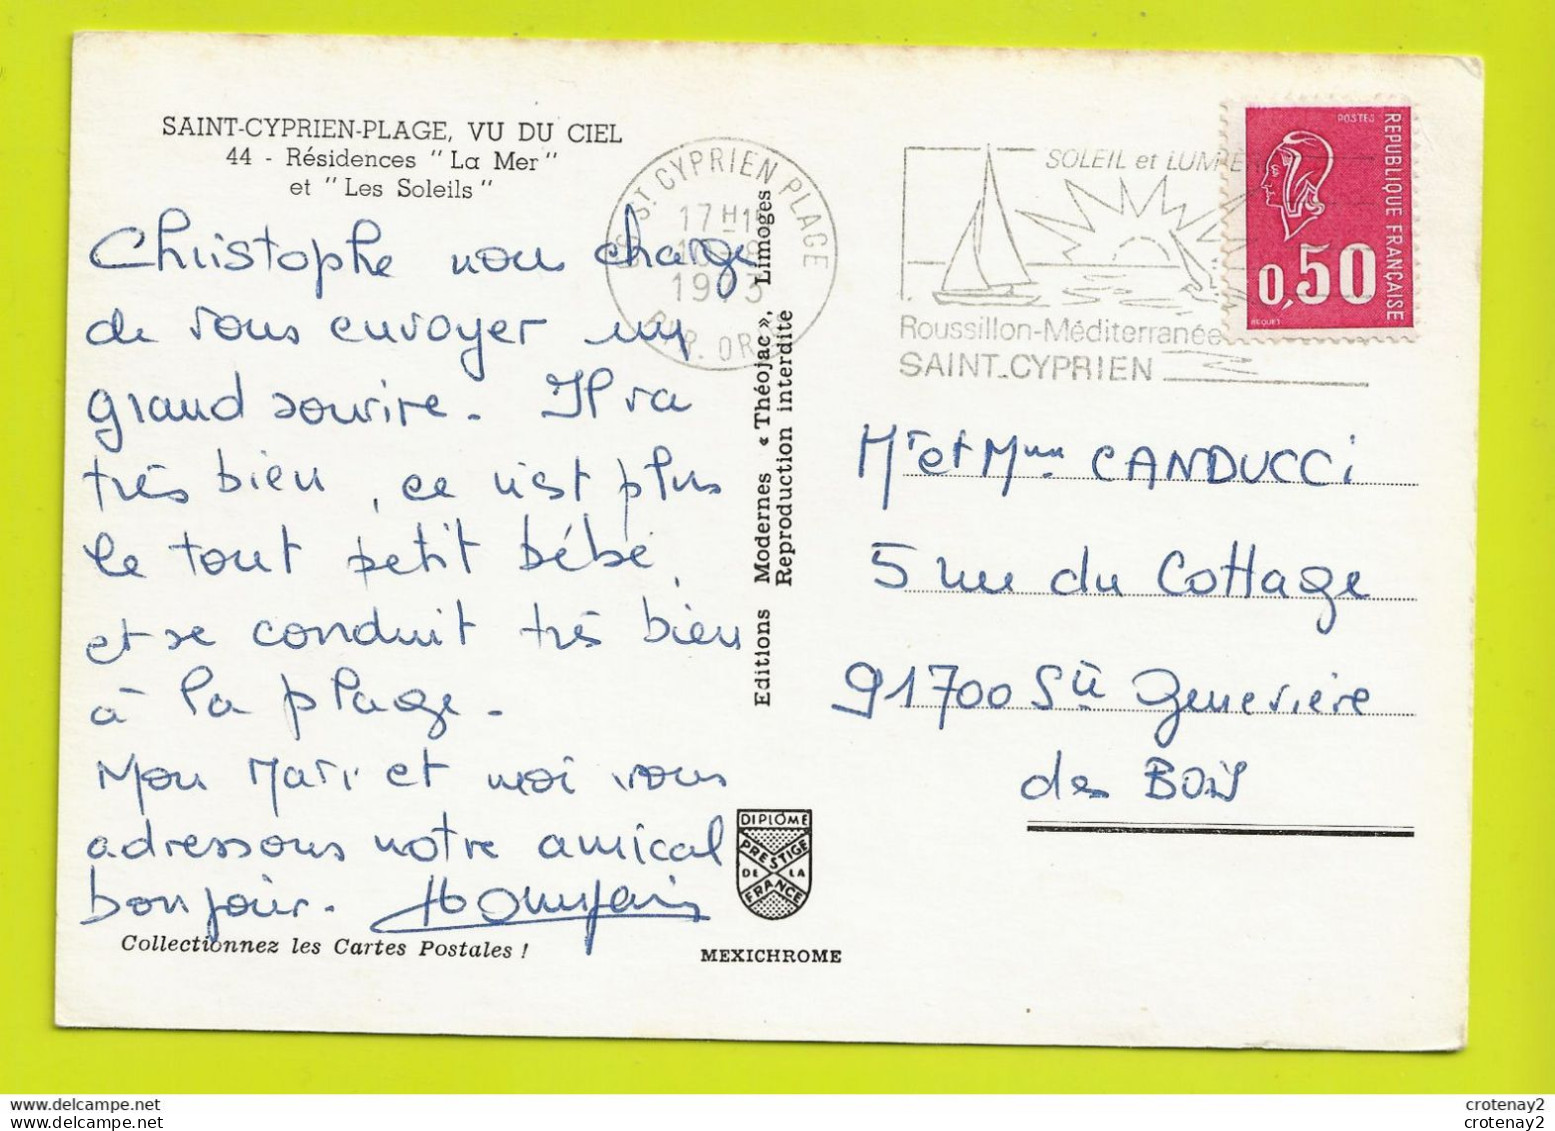 SAINT-CYPRIEN-PLAGE, VU DU CIEL
44 - Résidences "La Mer"
et "Les Soleils"
Christophe nous charge
de vous envoyer un
grand sourire. Il va
très bien, ce n'est plus
le tout petit bébé,
et se conduit très bien
à la plage.
Mon Mari et moi vous
adressons notre amical
bonjour.
Collectionnez les Cartes Postales !
ST CYPRIEN PLAGE
17H1
1973
P. OR
Editions Modernes « Théojac », Limoges
Reproduction interdite
DIPLÔME
PRESTIGE
DE LA
FRANCE
MEXICHROME
SOLEIL et LUMIÈ
Roussillon-Méditerranée
SAINT-CYPRIEN
POSTES
REPUBLIQUE FRANÇAISE
0,50
BEQUET
Mr et Mme CANDUCCI
5 rue du Cottage
91700 Ste Geneviève
des BOIS
crotenay2
crotenay2
www.delcampe.net
www.delcampe.net